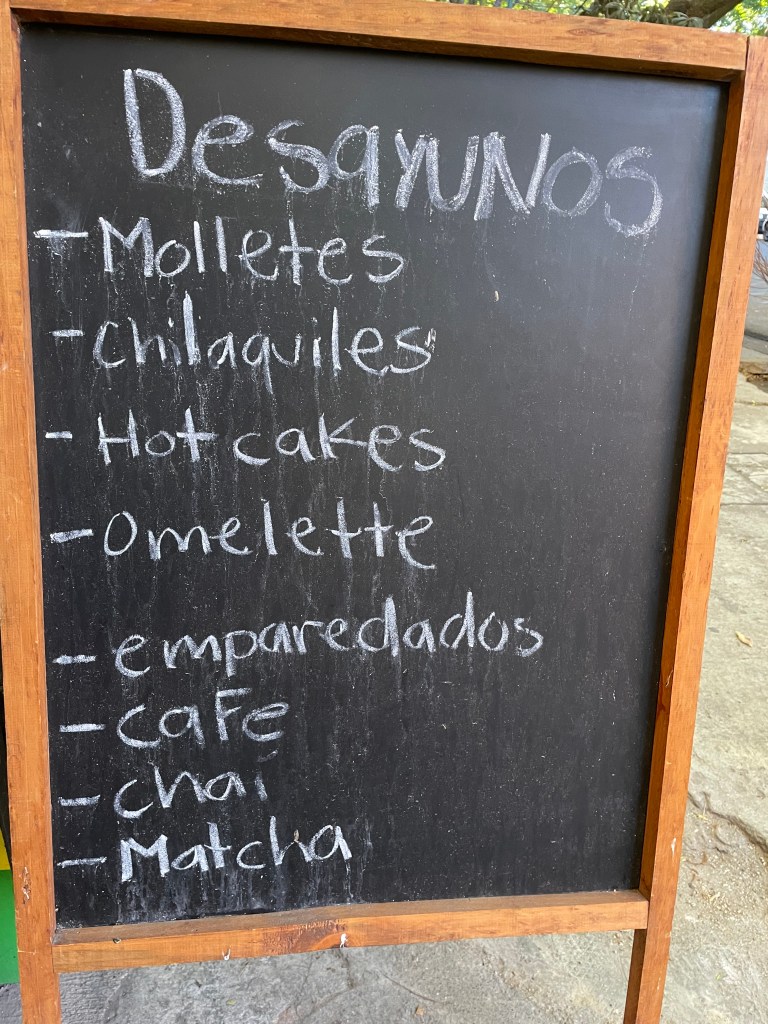 DesayuNos
- Molletes
- chilaquiles
- Hot cakes
- omelette
- emparedados
- cafe
- chai
- Matcha